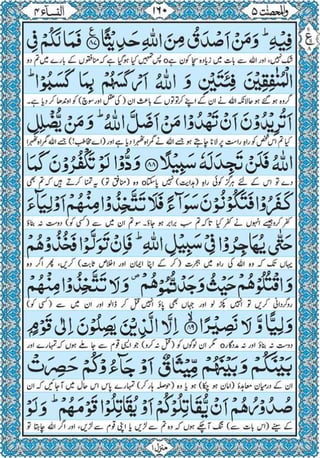 النساء ۴
۱۶۰
والمحصنت ۵
فِيْهِ ؕ وَ مَنْ اَصْدَقُ مِنَ اللّٰهِ حَدِيْثًا ﴿۸۷﴾ فَمَا لَكُمْ فِی
شک نہیں، اور اللہ سے بات میں زیادہ سچا کون ہے؟ پس تمہیں کیا ہو گیا ہے کہ منافقوں کے بارے میں تم دو
الْمُنٰفِقِيْنَ فِئَتَيْنِ وَ اللّٰهُ اَرْكَسَهُمْ بِمَا كَسَبُوْا ؕ
گروہ ہو گئے ہو حالانکہ اللہ نے ان کے اپنے کرتوتوں کے باعث ان (کی عقل اور سوچ) کو اوندھا کر دیا ہے۔
اَتُرِيْدُوْنَ اَنْ تَهْدُوْا مَنْ اَضَلَّ اللّٰهُ ؕ وَ مَنْ يُّضْلِلِ
کیا تم اس شخص کو راہِ راست پر لانا چاہتے ہو جسے اللہ نے گمراہ ٹھہرا دیا ہے اور (اے مخاطب!) جسے اللہ گمراہ ٹھہرا
اللّٰهُ فَلَنْ تَجِدَ لَهٗ سَبِيْلًا ﴿۸۸﴾ وَدُّوْا لَوْ تَكْفُرُوْنَ كَمَا
دے تو اس کے لئے ہرگز کوئی راہِ (ہدایت) نہیں پاسکتا۔ وہ (منافق تو) یہ تمنا کرتے ہیں کہ تم بھی
كَفَرُوْا فَتَكُوْنُوْنَ سَوَآءً فَلَا تَتَّخِذُوْا مِنْهُمْ اَوْلِيَآءَ
کفر کرو جیسے انہوں نے کفر کیا تاکہ تم سب برابر ہو جاؤ۔ سو تم ان میں سے (کسی کو) دوست نہ بناؤ
حَتّٰى يُهَاجِرُوْا فِیْ سَبِيْلِ اللّٰهِ ؕ فَاِنْ تَوَلَّوْا فَخُذُوْهُمْ
یہاں تک کہ وہ اللہ کی راہ میں ہجرت (کر کے اپنا ایمان اور اخلاص ثابت) کریں، پھر اگر وہ
وَ اقْتُلُوْهُمْ حَيْثُ وَجَدْتُّمُوْهُمْ ۪ وَ لَا تَتَّخِذُوْا مِنْهُمْ
روگردانی کریں تو انہیں پکڑ لو اور جہاں بھی پاؤ انہیں قتل کر ڈالو اور ان میں سے (کسی کو)
وَلِيًّا وَّ لَا نَصِيْرًا ﴿۸۹﴾ اِلَّا الَّذِيْنَ يَصِلُوْنَ اِلٰى قَوْمٍۭ
دوست نہ بناؤ اور نہ مددگار۔ مگر ان لوگوں کو (قتل نہ کرو) جو ایسی قوم سے جا ملے ہوں کہ تمہارے اور
بَيْنَكُمْ وَ بَيْنَهُمْ مِّيْثَاقٌ اَوْ جَآءُوْكُمْ حَصِرَتْ
ان کے درمیان معاہدۂ (امان ہو چکا) ہو یا وہ (حوصلہ ہار کر) تمہارے پاس اس حال میں آ جائیں کہ ان
صُدُوْرُهُمْ اَنْ يُّقَاتِلُوْكُمْ اَوْ يُقَاتِلُوْا قَوْمَهُمْ ؕ وَ لَوْ
کے سینے (اس بات سے) تنگ آ چکے ہوں کہ وہ تم سے لڑیں یا اپنی قوم سے لڑیں، اور اگر اللہ چاہتا تو
منزل ۱